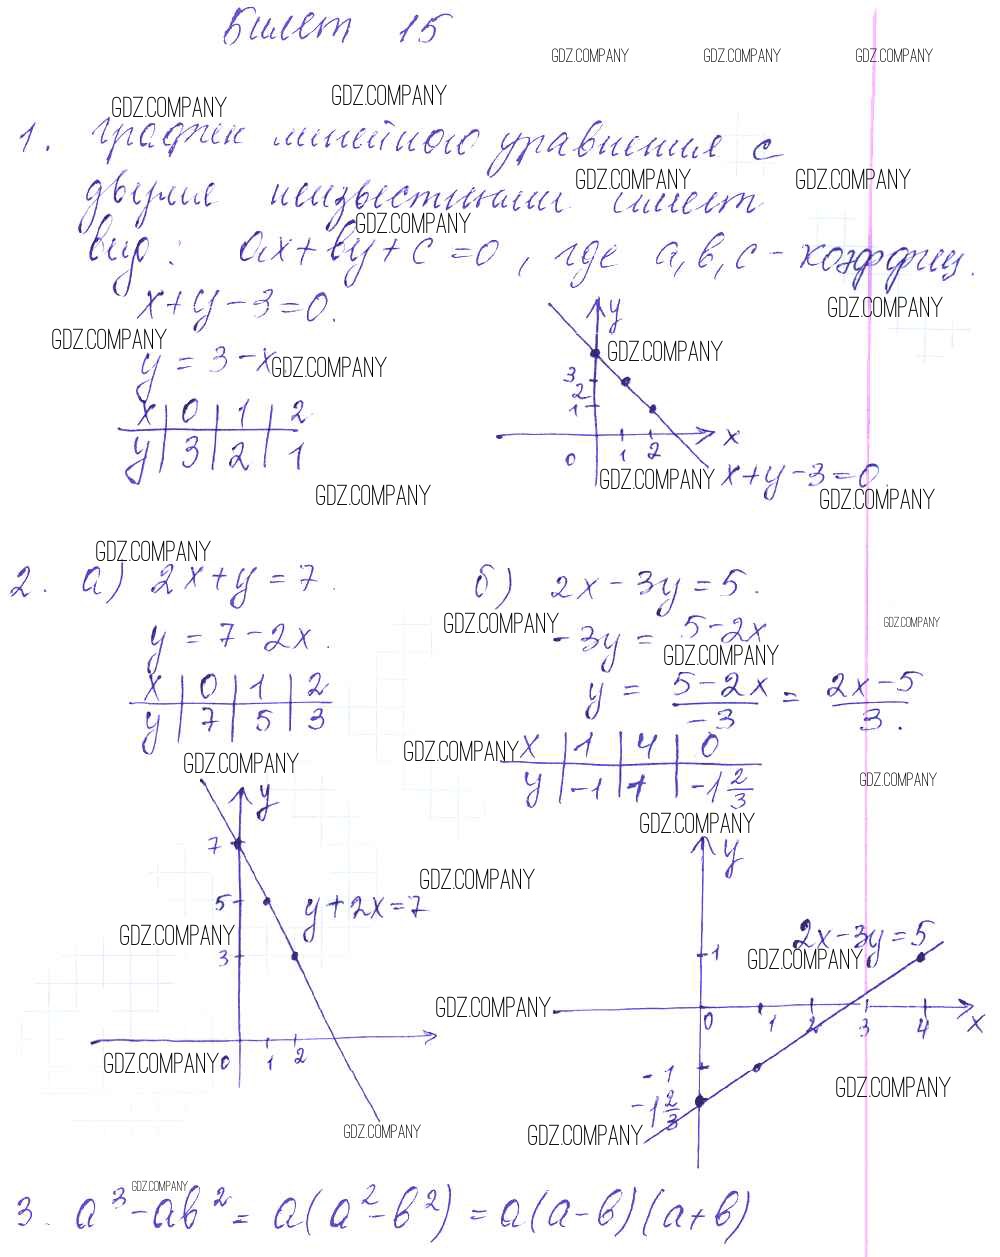 Билет 15
GDZ.COMPANY GDZ.COMPANY GDZ.COMPANY
GDZ.COMPANY GDZ.COMPANY
1. График линейного уравнения с
GDZ.COMPANY GDZ.COMPANY
двумя неизвестными имеет
GDZ.COMPANY
вид: ax+by+c=0, где a,b,c - коэффиц.
x+y-3=0. GDZ.COMPANY
GDZ.COMPANY
y = 3-x GDZ.COMPANY
x | 0 | 1 | 2
y | 3 | 2 | 1
y GDZ.COMPANY
3
2
1
0 1 2 x
GDZ.COMPANY x+y-3=0.
GDZ.COMPANY GDZ.COMPANY
GDZ.COMPANY
2. а) 2x+y=7.
y = 7-2x.
x | 0 | 1 | 2
y | 7 | 5 | 3
GDZ.COMPANY
y
7
5 y+2x=7
GDZ.COMPANY
3
GDZ.COMPANY 0 1 2
GDZ.COMPANY
б) 2x-3y=5.
GDZ.COMPANY GDZ.COMPANY
-3y = 5-2x
GDZ.COMPANY
y = 5-2x/-3 = 2x-5/3.
GDZ.COMPANY
x | 1 | 4 | 0
y | -1 | 1 | -1 2/3
GDZ.COMPANY
GDZ.COMPANY
y
GDZ.COMPANY
2x-3y=5
1 GDZ.COMPANY
GDZ.COMPANY
0 1 2 3 4 x
-1 GDZ.COMPANY
-1 2/3
GDZ.COMPANY
GDZ.COMPANY
3. a³-ab² = a(a²-b²) = a(a-b)(a+b)